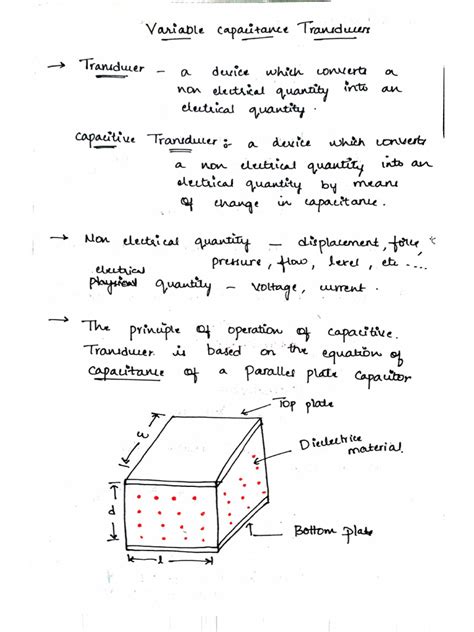 Variable Capacitance Transducers
→ Transducer - a device which converts a
non electrical quantity into an
electrical quantity.
Capacitive Transducer :- a device which converts
a non electrical quantity into an
electrical quantity by means
of change in capacitance.
→ Non electrical quantity - displacement, force,
pressure, flow, level, etc....
electrical
physical quantity - voltage, current.
→ The principle of operation of capacitive.
Transducer is based on the equation of
capacitance of a Parallel plate capacitor
Top plate
w
Dielectrice
material.
d
Bottom plate
l